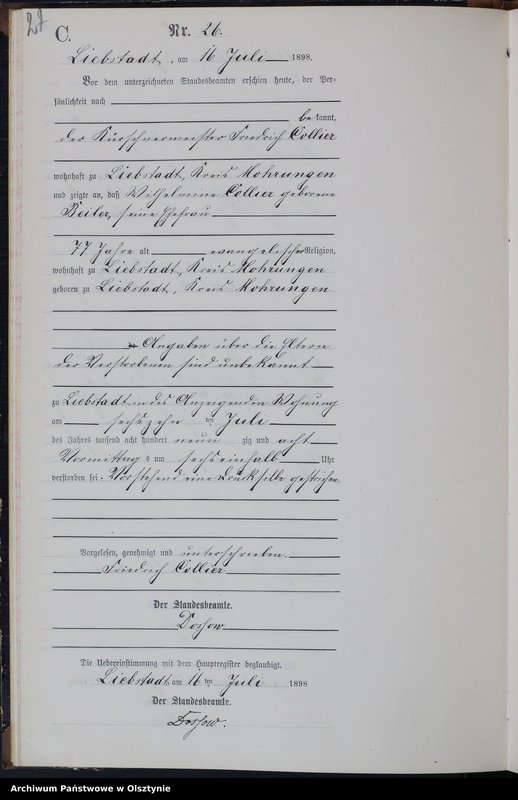 27
C.
Nr. 26.
Liebstadt, am 16 Juli 1898.
Vor dem unterzeichneten Standesbeamten erschien heute, der Per-
sönlichkeit nach
be kannt,
der Kürschnermeister Friedrich Collier
wohnhaft zu Liebstadt, Kreis Mohrungen
und zeigte an, daß Wilhelmine Collier geborene
Beiler, seine Ehefrau
77 Jahre alt evangelischer Religion,
wohnhaft zu Liebstadt, Kreis Mohrungen
geboren zu Liebstadt, Kreis Mohrungen
Angaben über die Eltern
der Verstorbenen sind unbekannt
zu Liebstadt in des Anzeigenden Wohnung
am sechszehn ten Juli
des Jahres tausend acht hundert neun zig und acht
Vormittag s um sechseinhalb Uhr
verstorben sei. Vorstehend eine Drucksilbe gestrichen.
Vorgelesen, genehmigt und unterschrieben.
Friedrich Collier
Der Standesbeamte.
Die Uebereinstimmung mit dem Hauptregister beglaubigt.
Liebstadt, am 16 ten Juli 1898
Der Standesbeamte.
Archiwum Państwowe w Olsztynie